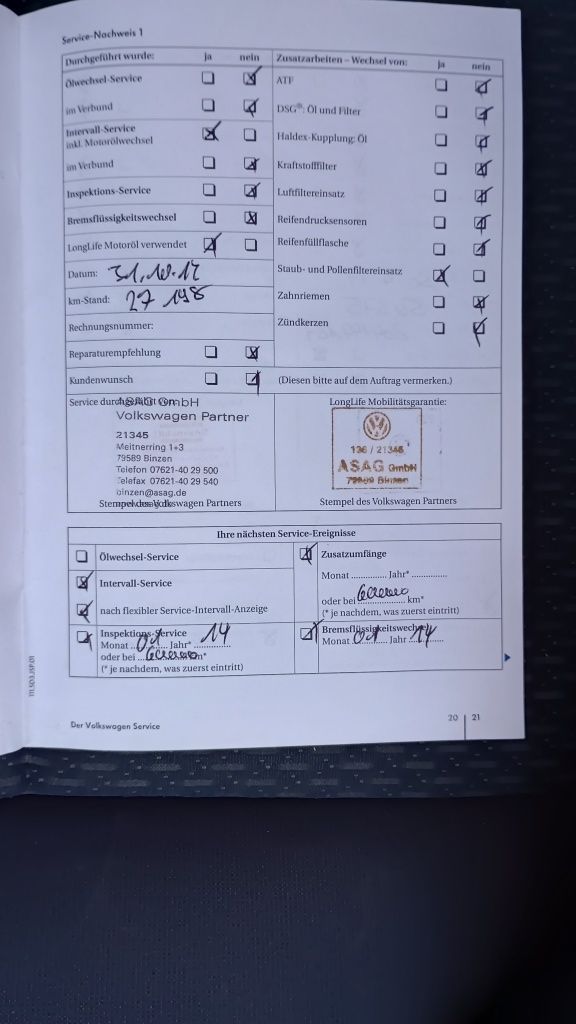 Service-Nachweis 1
Durchgeführt wurde: ja nein
Ölwechsel-Service
im Verbund
Intervall-Service
inkl. Motorölwechsel
im Verbund
Inspektions-Service
Bremsflüssigkeitswechsel
LongLife Motoröl verwendet
Datum: 31.10.12
km-Stand: 27 198
Rechnungsnummer:
Reparaturempfehlung
Kundenwunsch
Zusatzarbeiten – Wechsel von: ja nein
ATF
DSG®: Öl und Filter
Haldex-Kupplung: Öl
Kraftstofffilter
Luftfiltereinsatz
Reifendrucksensoren
Reifenfüllflasche
Staub- und Pollenfiltereinsatz
Zahnriemen
Zündkerzen
(Diesen bitte auf dem Auftrag vermerken.)
Service durchgeführt von:
ASAG GmbH
Volkswagen Partner
21345
Meitnerring 1+3
79589 Binzen
Telefon 07621-40 29 500
Telefax 07621-40 29 540
binzen@asag.de
Stempel des Volkswagen Partners
LongLife Mobilitätsgarantie:
136 / 21345
ASAG GmbH
79589 Binzen
Stempel des Volkswagen Partners
Ihre nächsten Service-Ereignisse
Ölwechsel-Service
Intervall-Service
nach flexibler Service-Intervall-Anzeige
Inspektions-Service
Monat 01 Jahr* 14
oder bei km*
(* je nachdem, was zuerst eintritt)
Zusatzumfänge
Monat .............. Jahr* ..............
oder bei km*
(* je nachdem, was zuerst eintritt)
Bremsflüssigkeitswechsel
Monat 01 Jahr 14
111.5D3.JSP.01
Der Volkswagen Service
20 21